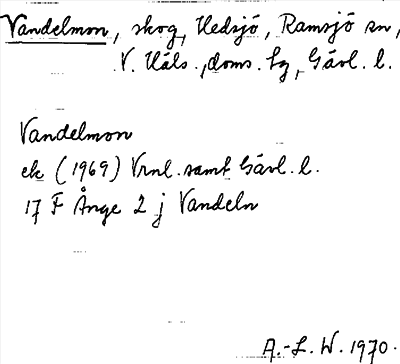 Vandelmon, skog, Hedsjö, Ramsjö sn,
V. Häls., doms. hg, Gävl. l.
Vandelmon
ek (1969) Vrnl. samt Gävl. l.
17 F Ånge 2 j Vandeln
A.-L. W. 1970.